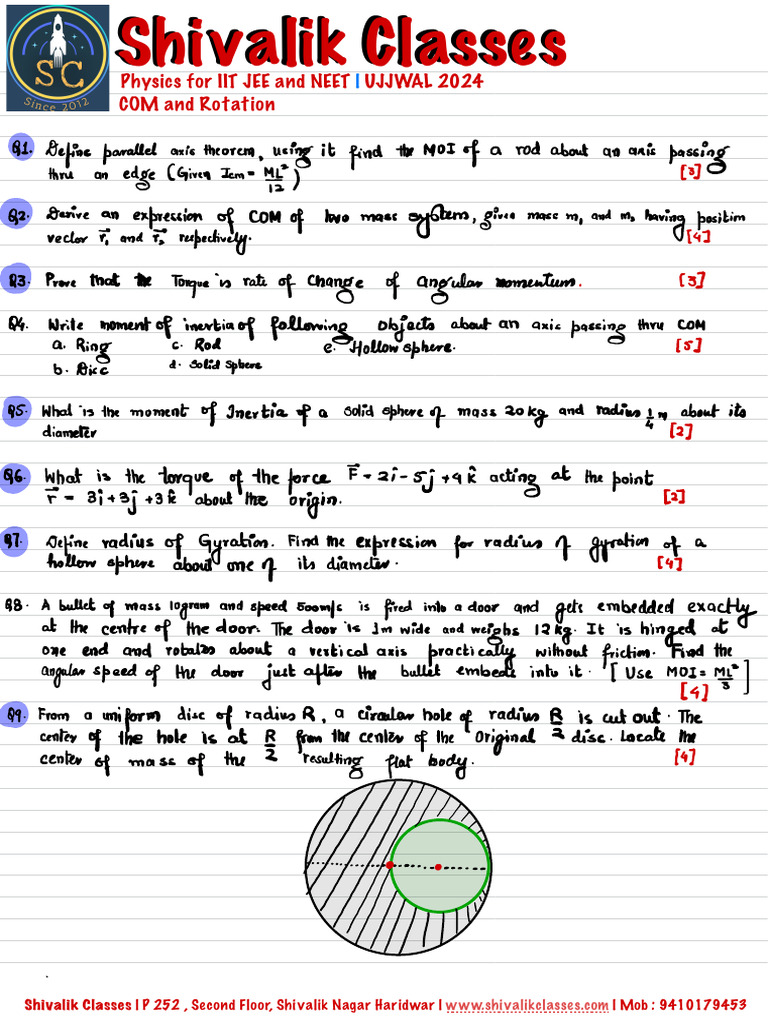 SC
Since 2012
Shivalik Classes
Physics for IIT JEE and NEET | UJJWAL 2024
COM and Rotation
Q1. Define parallel axis theorem, using it find the MOI of a rod about an axis passing
thru an edge (Given Icm = ML²/12) [3]
Q2. Derive an expression of COM of two mass system, given mass m₁ and m₂ having position
vector r⃗₁ and r⃗₂ respectively. [4]
Q3. Prove that the Torque is rate of change of angular momentum. [3]
Q4. Write moment of inertia of following objects about an axis passing thru COM
a. Ring c. Rod e. Hollow sphere. [5]
b. Disc d. Solid Sphere
Q5. What is the moment of Inertia of a solid sphere of mass 20kg and radius 1/4 m about its
diameter [2]
Q6. What is the torque of the force F⃗ = 2î - 5ĵ + 4k̂ acting at the point
r⃗ = 3î + 3ĵ + 3k̂ about the origin. [2]
Q7. Define radius of Gyration. Find the expression for radius of gyration of a
hollow sphere about one of its diameter. [4]
Q8. A bullet of mass 10gram and speed 500m/s is fired into a door and gets embedded exactly
at the centre of the door. The door is 1m wide and weighs 12kg. It is hinged at
one end and rotates about a vertical axis practically without friction. Find the
angular speed of the door just after the bullet embeds into it. [Use MOI = ML²/3]
[4]
Q9. From a uniform disc of radius R, a circular hole of radius R/2 is cut out. The
center of the hole is at R/2 from the center of the original disc. Locate the
center of mass of the resulting flat body. [4]
Shivalik Classes | P 252 , Second Floor, Shivalik Nagar Haridwar | www.shivalikclasses.com | Mob : 9410179453